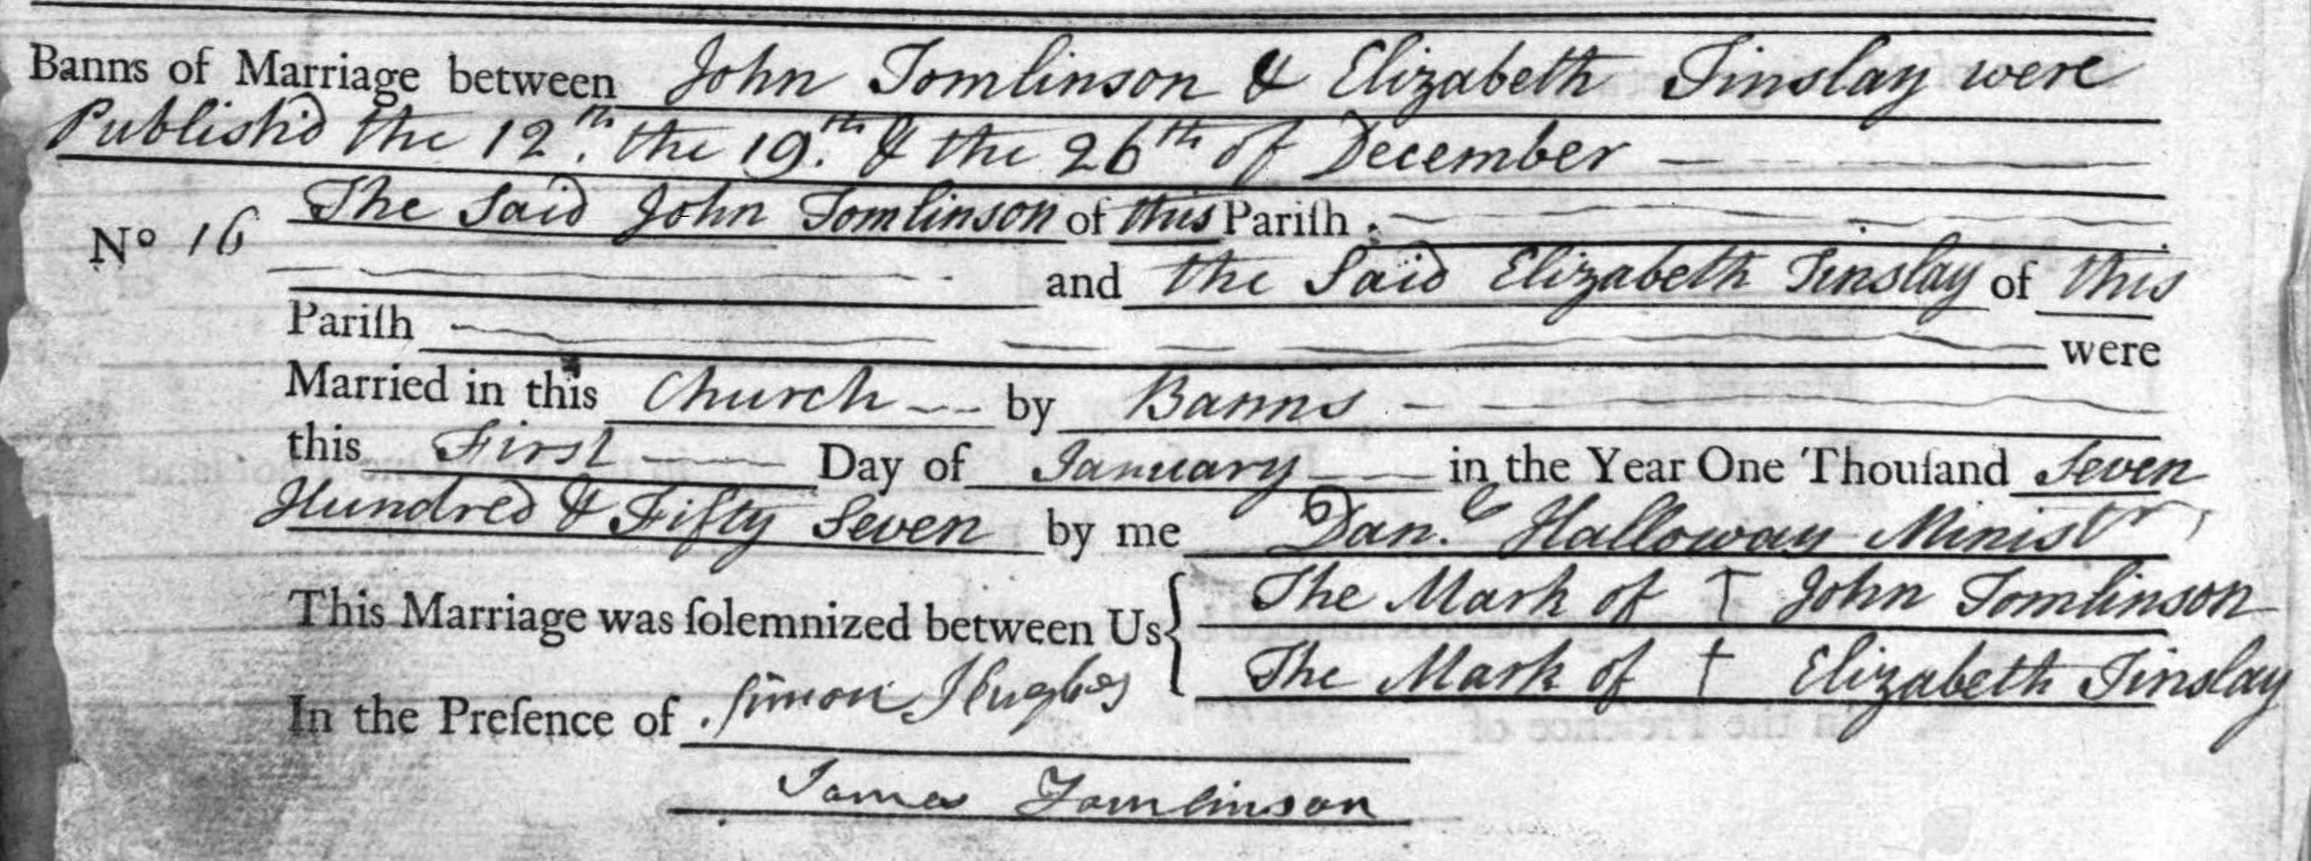 Banns of Marriage between John Tomlinson & Elizabeth Tinslay were
Publish'd the 12th. the 19th. & the 26th of December
No 16 The Said John Tomlinson of this Pariſh
and the Said Elizabeth Tinslay of this
Pariſh were
Married in this Church by Banns
this First Day of January in the Year One Thouſand Seven
Hundred & Fifty Seven by me Dan.l Halloway Ministr
This Marriage was ſolemnized between Us { The Mark of † John Tomlinson
The Mark of † Elizabeth Tinslay
In the Preſence of Simon Hughes
James Tomlinson